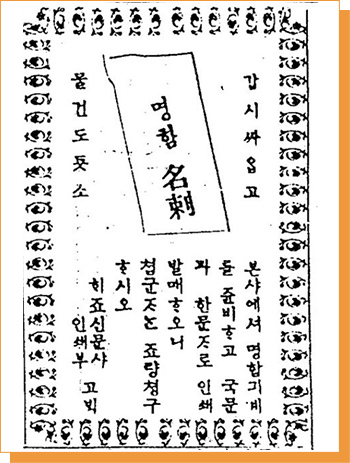 갑시싸옵고
명함 名刺
물건도둇소
본사에셔 명함긔계
를 쥰비ᄒᆞ고 국문
과 한문ᄌᆞ로 인쇄
발매ᄒᆞ오니
쳠군ᄌᆞᄂᆞᆫ 죠량쳥구
ᄒᆞ시오
ᄒᆡ죠신문사
인쇄부 고ᄇᆡᆨ